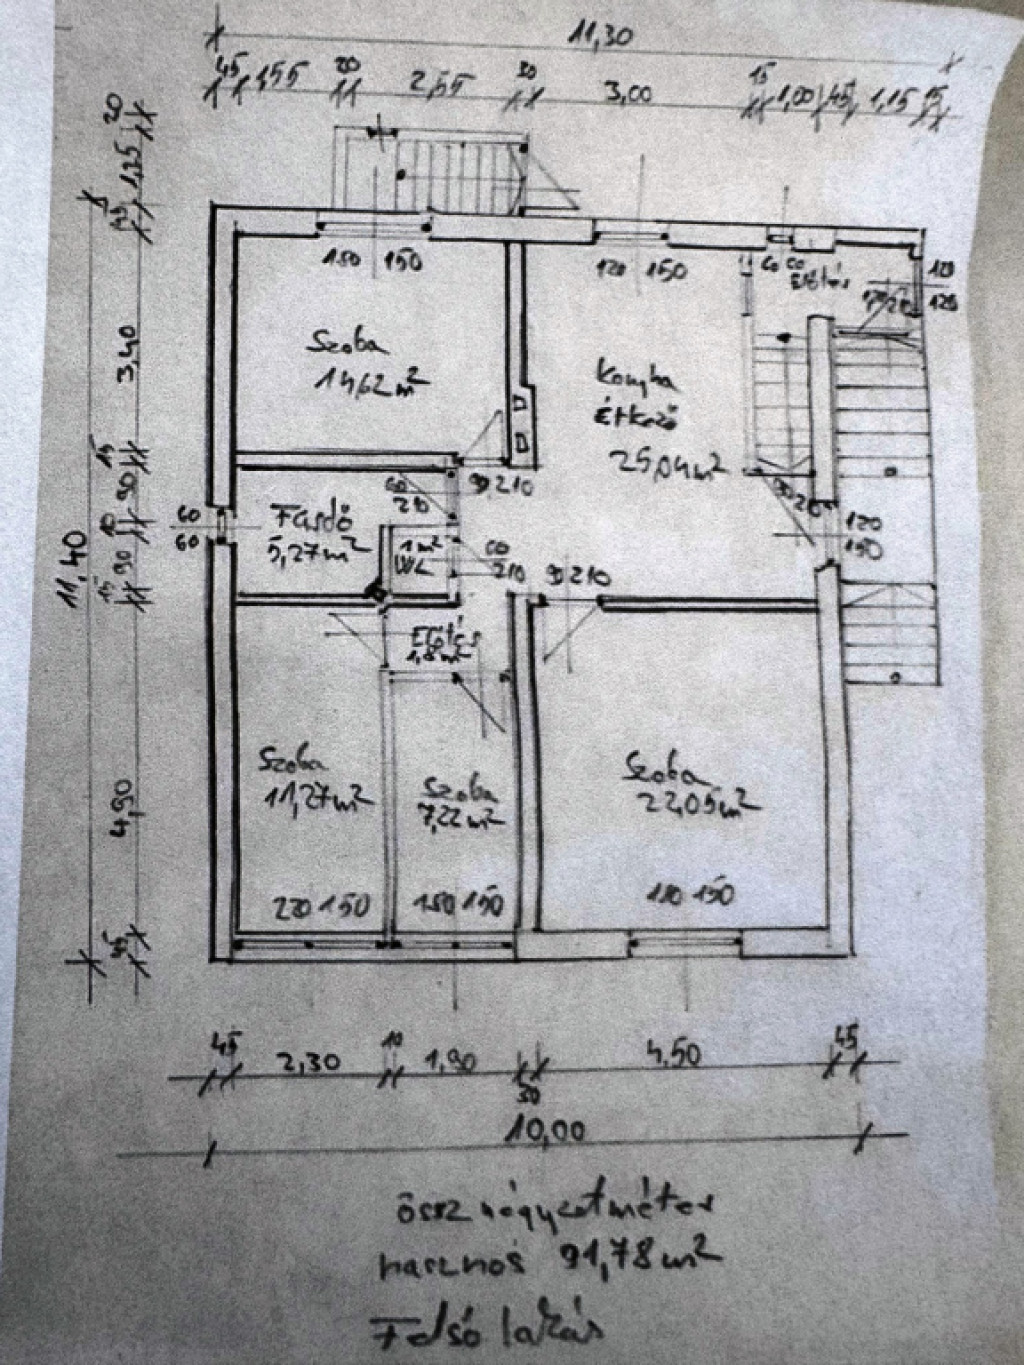 11,30
45 1,55 20 2,55 30 3,00 15 1,00 45 1,15 15
20
1,25
45
180 150
120 150
60 60
Előtér
120
120
Szoba
14,62 m²
3,40
Konyha
étkező
25,04 m²
15
90
90 210
60
210
Fürdő
5,27 m²
1 m²
WC
60
60
10
90
15
11,40
60
210
90 210
90 210
120
150
Előtér
Szoba
11,27 m²
Szoba
7,22 m²
Szoba
22,05 m²
4,90
220 150
180 150
180 150
45
45 2,30 10 1,90 30 4,50 45
10,00
össz négyzetméter
hasznos 91,78 m²
Felső lakás